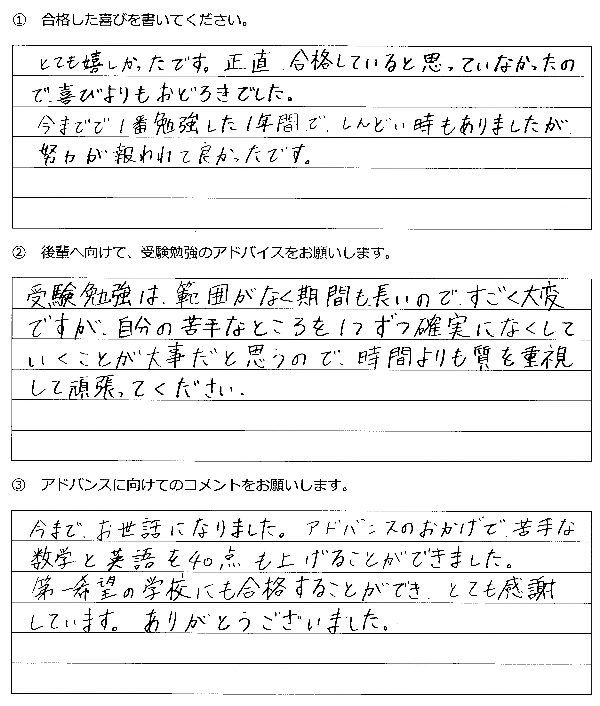 ① 合格した喜びを書いてください。
とても嬉しかったです。正直、合格していると思っていなかったの
で、喜びよりもおどろきでした。
今までで1番勉強した1年間で、しんどい時もありましたが、
努力が報われて良かったです。
② 後輩へ向けて、受験勉強のアドバイスをお願いします。
受験勉強は、範囲がなく期間も長いので、すごく大変
ですが、自分の苦手なところを1つずつ確実になくして
いくことが大事だと思うので、時間よりも質を重視
して頑張ってください。
③ アドバンスに向けてのコメントをお願いします。
今まで、お世話になりました。アドバンスのおかげで、苦手な
数学と英語を40点も上げることができました。
第一希望の学校にも合格することができ、とても感謝
しています。ありがとうございました。